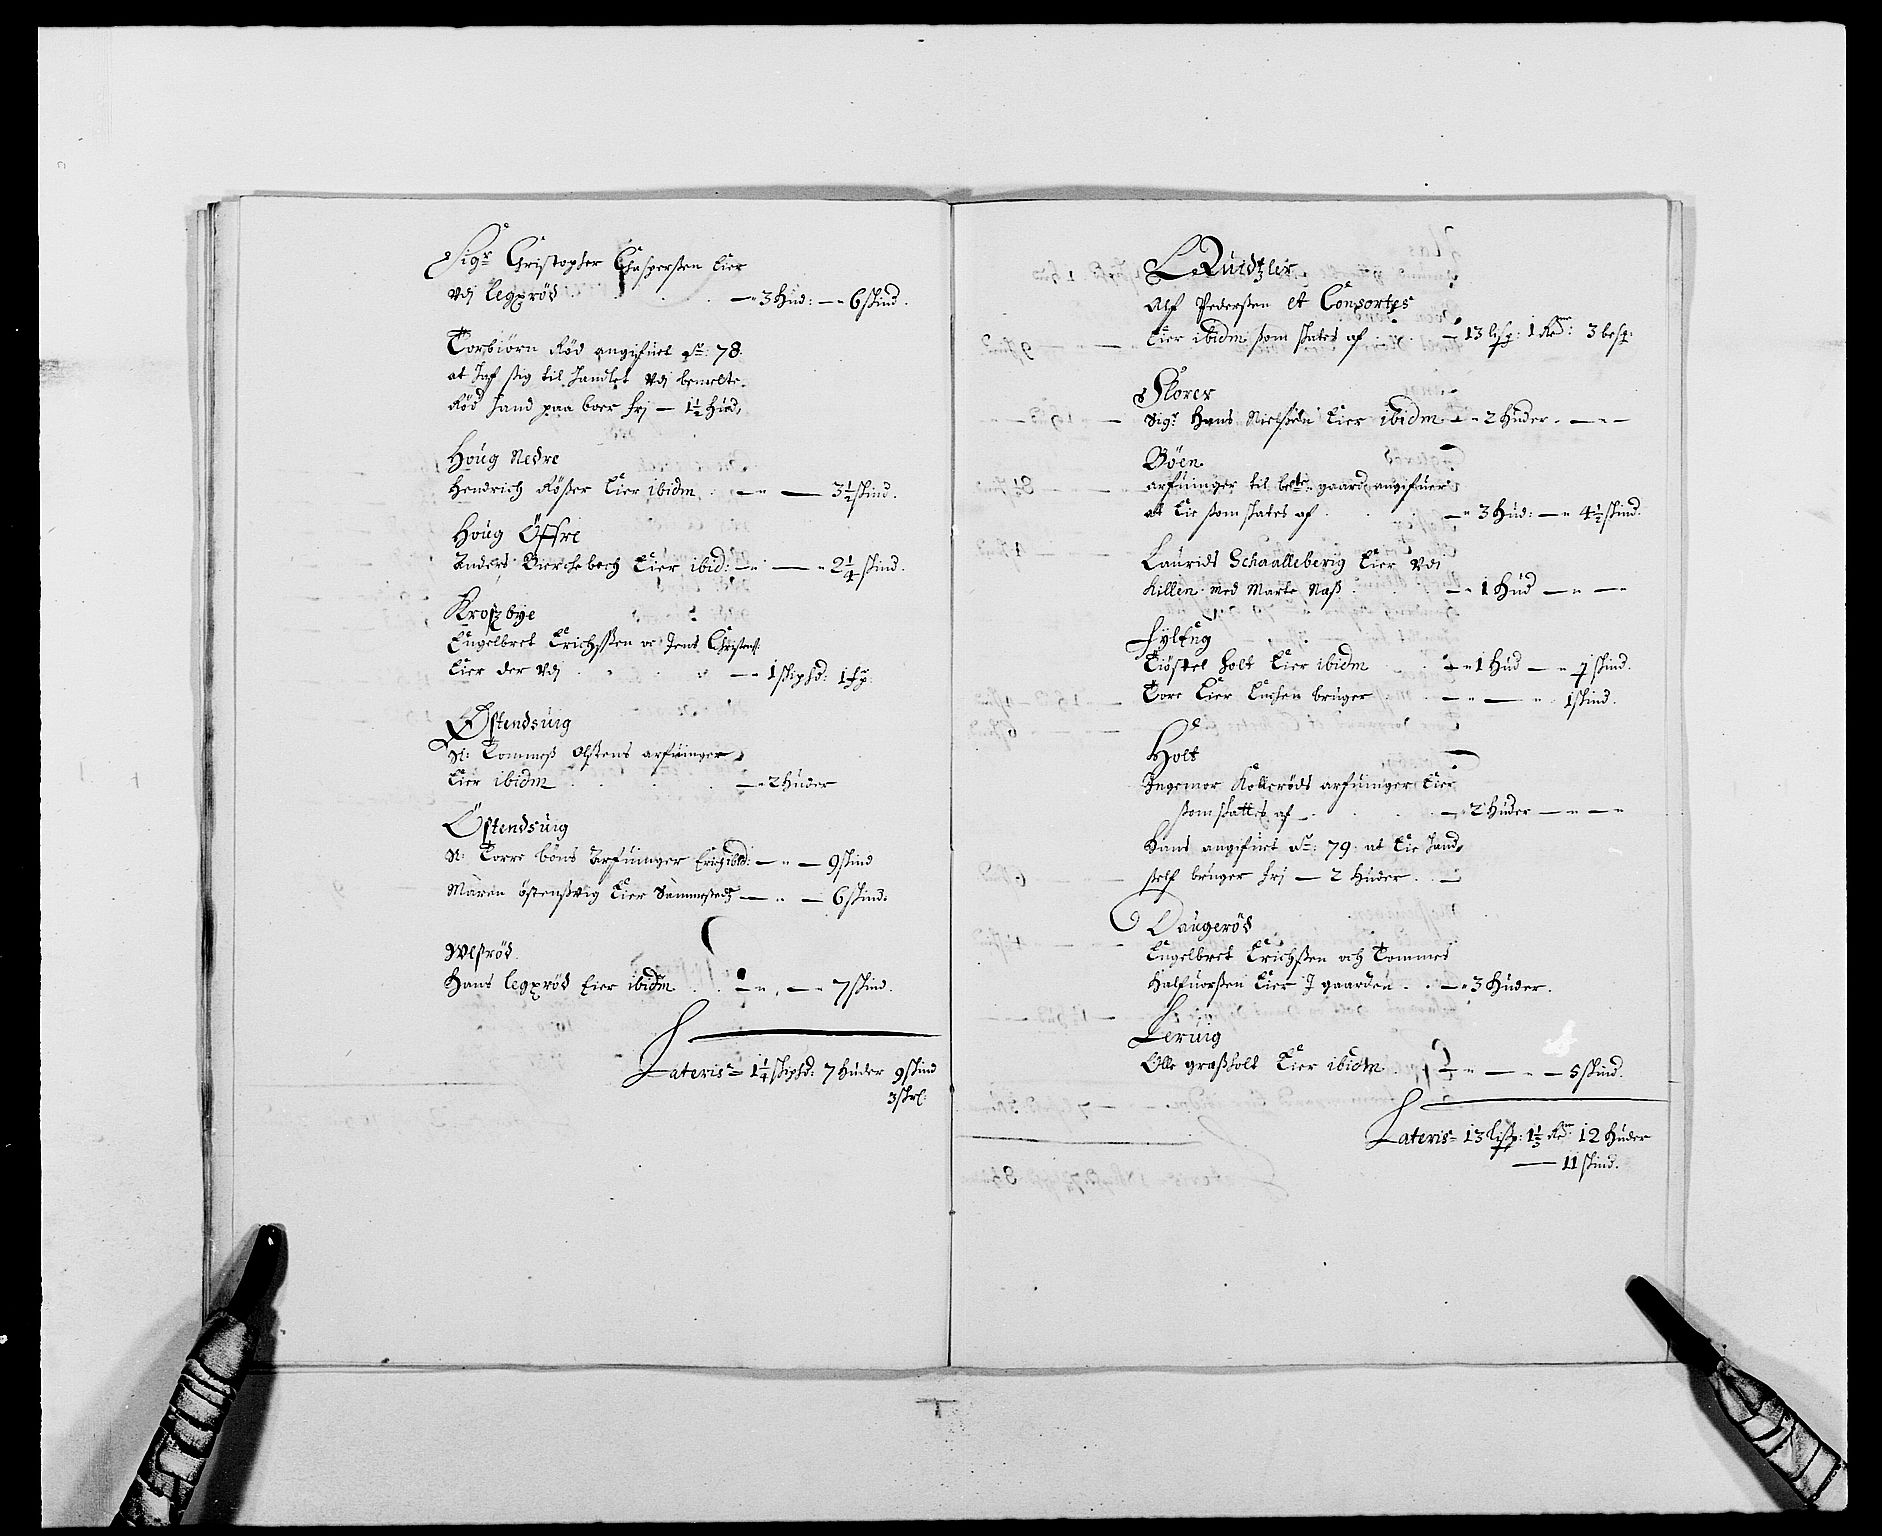 Sigr Christopher Caspersen Eier
vdj Legxröd — 3 Hud: — 6 skind.
Torbiörn Röd angifuet Ao: 78.
at haf sig til handlet vdj bemelte
Röd hand paa boer frj — 1½ Hud,
Houg Nedre
Hendrich Rößer Eier ibidm — " — 3½ skind.
Houg Öffre
Anders Bierchebech Eier ibid: — " — " 2¼ skind.
Krogbye
Engelbret Erichssen oc Jens Christens:
Eier der vdj — " 1 skiphd: 1 hp:
Östendsuig
Sl: Tommeß Olssens arfuinger
Eier ibidm — " 2 Huder
Östendsuig
Sl: Torre böns Arfuinger Eier ibid: — " — 9 skind
Maren östensvig Eier Sammestedz — " — 6 skind.
Welßröd.
Hans legxröd Eier ibidm — " — " 7 skind.
Lateris 1¼ skiphd: 7 Huder 9 skind
3 skrl:
Quidtzler
Alf Pedersen et Consortes
Eier ibidm som skates af — 13 lisp: 1 Rem: 3 besp:
Skorer
Sigr Hans Nielssen Eier ibidm — " 2 Huder. — " —
Böen
arfuinger til bete gaard angifuer
at Eie som skates af — " 3 Hud: — " 4½ skind.
Laurids Schaalleberig Eier vdj
Killen med Marte Naß — " 1 Hud — " —
Fylling
Tiöstel Holt Eier ibidm — " 1 Hud — " 1 skind.
Tore Eier Enchen bruger — " — " 1 skind.
Holt
Ingemor Kolleröds arfuinger Eier
som skattes af — " 2 Huder — " —
Hans angifuet Ao: 79: at Eie hand
self bruger frj — 2 Huder.
Daugeröd
Engelbret Erichssen och Tommes
Halfuorssen Eier J gaarden — " 3 Huder.
Leruig
Olle graßholt Eier ibidm — " — " — 5 skind.
Lateris 13 lisp: 1⅓ Rem: 12 Huder
— 11 skind.